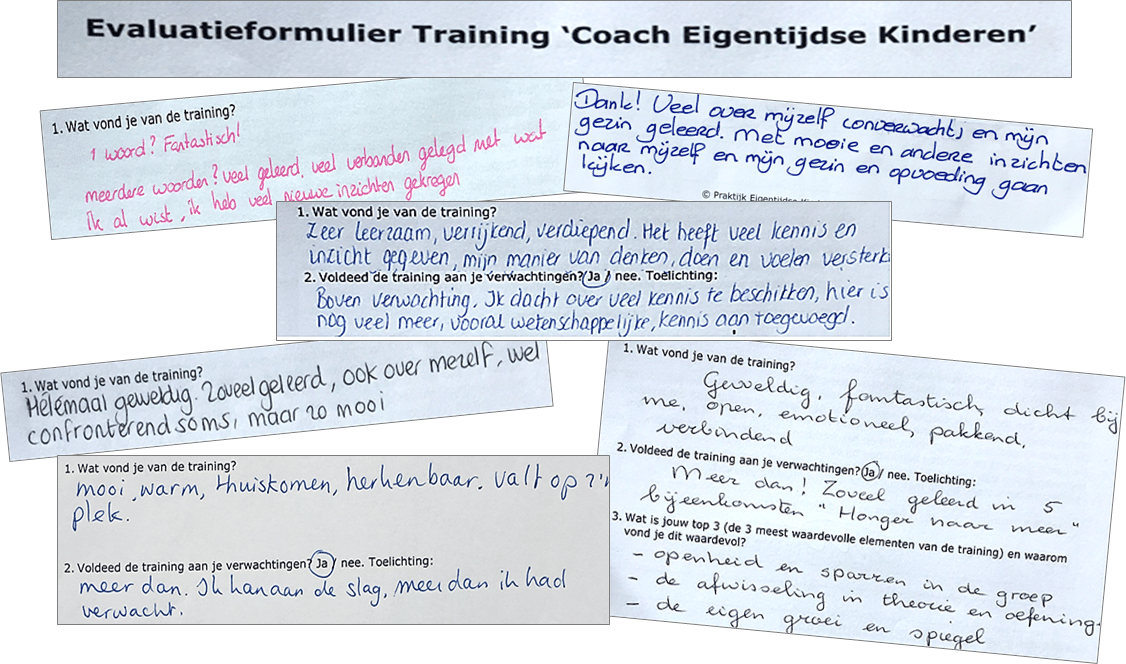 Evaluatieformulier Training ‘Coach Eigentijdse Kinderen’
1. Wat vond je van de training?
1 woord? Fantastisch!
meerdere woorden? veel geleerd, veel verbanden gelegd met wat
ik al wist, ik heb veel nieuwe inzichten gekregen
Dank! Veel over mijzelf (onverwacht) en mijn
gezin geleerd. Met mooie en andere inzichten
naar mijzelf en mijn gezin en opvoeding gaan
kijken.
© Praktijk Eigentijdse
1. Wat vond je van de training?
Zeer leerzaam, verrijkend, verdiepend. Het heeft veel kennis en
inzicht gegeven, mijn manier van denken, doen en voelen versterk
2. Voldeed de training aan je verwachtingen? Ja / nee. Toelichting:
Boven verwachting. Ik dacht over veel kennis te beschikken, hier is
nog veel meer, vooral wetenschappelijke, kennis aan toegevoegd.
1. Wat vond je van de training?
Helemaal geweldig. Zoveel geleerd, ook over mezelf, wel
confronterend soms, maar zo mooi
1. Wat vond je van de training?
mooi, warm, thuiskomen, herkenbaar. valt op z'n
plek.
2. Voldeed de training aan je verwachtingen? Ja / nee. Toelichting:
meer dan. Ik kan aan de slag, meer dan ik had
verwacht.
1. Wat vond je van de training?
Geweldig, fantastisch, dicht bij
me, open, emotioneel, pakkend,
verbindend
2. Voldeed de training aan je verwachtingen? Ja / nee. Toelichting:
Meer dan! Zoveel geleerd in 5
bijeenkomsten "Honger naar meer"
3. Wat is jouw top 3 (de 3 meest waardevolle elementen van de training) en waarom
vond je dit waardevol?
- openheid en sparren in de groep
- de afwisseling in theorie en oefening.
- de eigen groei en spiegel